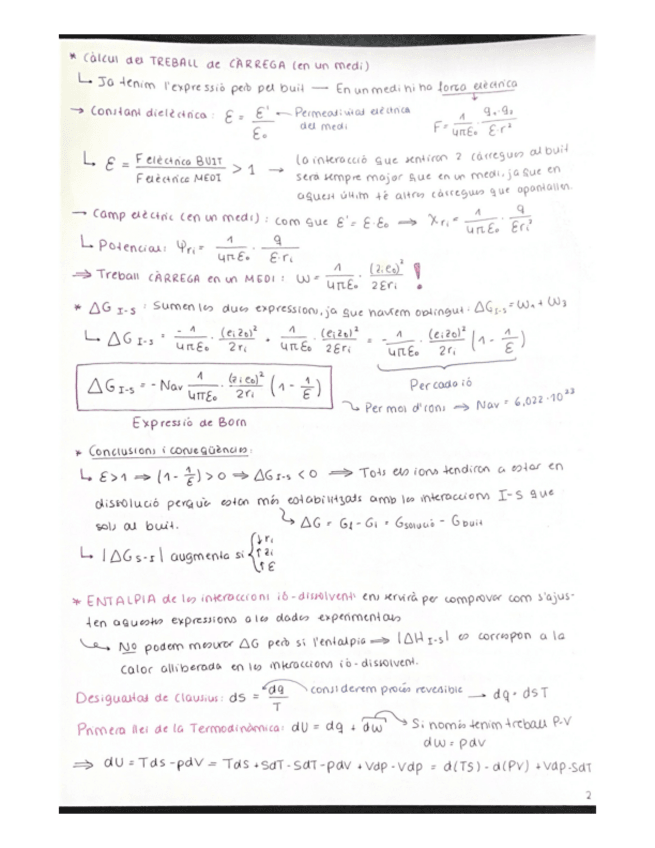 * Càlcul del TREBALL de CÀRREGA (en un medi)
↳ Ja tenim l'expressió però pel buit — En un medi hi ha força elèctrica
→ Constant dielèctrica: ε = ε'/ε₀ ← Permeativitat elèctrica del medi F = 1/4πε₀ · q₁·q₂/ε·r²
↳ ε = F elèctrica BUIT / F elèctrica MEDI > 1 → la interacció que sentiran 2 càrregues al buit
serà sempre major que en un medi, ja que en
aquest últim té altres càrregues que apantallen.
→ Camp elèctric (en un medi): com que ε' = ε·ε₀ ⇒ X ri = 1/4πε₀ · q/εri²
↳ Potencial: φri = 1/4πε₀ · q/ε·ri
⇒ Treball CÀRREGA en un MEDI: ω = 1/4πε₀ · (zi e₀)²/2εri !
* ΔG I-S: Sumen les dues expressions, ja que havíem obtingut: ΔG I-S = ω₁ + ω₃
↳ ΔG I-S = -1/4πε₀ · (ei z₀)²/2ri + 1/4πε₀ · (ei z₀)²/2εri = -1/4πε₀ · (ei z₀)²/2ri (1 - 1/ε)
Per cada ió
ΔG I-S = -Nav 1/4πε₀ · (zi e₀)²/2ri (1 - 1/ε)
↳ Per mol d'ions ⇒ Nav = 6,022·10²³
Expressió de Born
* Conclusions i conseqüències:
↳ ε>1 ⇒ (1 - 1/ε) > 0 ⇒ ΔG I-S < 0 ⇒ Tots els ions tendiran a estar en
dissolució perquè estan més estabilitzats amb les interaccions I-S que
sols al buit. ↳ ΔG = Gf - Gi = Gsolució - Gbuit
↳ |ΔG S-I| augmenta si { ↓ri
↑zi
↑ε
* ENTALPIA de les interaccions ió-dissolvent: ens servirà per comprovar com s'ajus-
ten aquestes expressions a les dades experimentals
↳ No podem mesurar ΔG però sí l'entalpia ⇒ |ΔH I-S| es correspon a la
calor alliberada en les interaccions ió-dissolvent.
Desigualtat de Clausius: dS = dq/T considerem procés reversible → dq = dST
Primera llei de la Termodinàmica: dU = dq + dw → Si només tenim treball P-V
dw = pdV
⇒ dU = Tds - pdV = Tds + SdT - SdT - pdV + Vdp - Vdp = d(TS) - d(PV) + Vdp - SdT
2